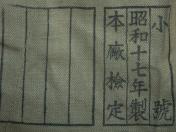 小號
昭和十七年製
本廠檢定